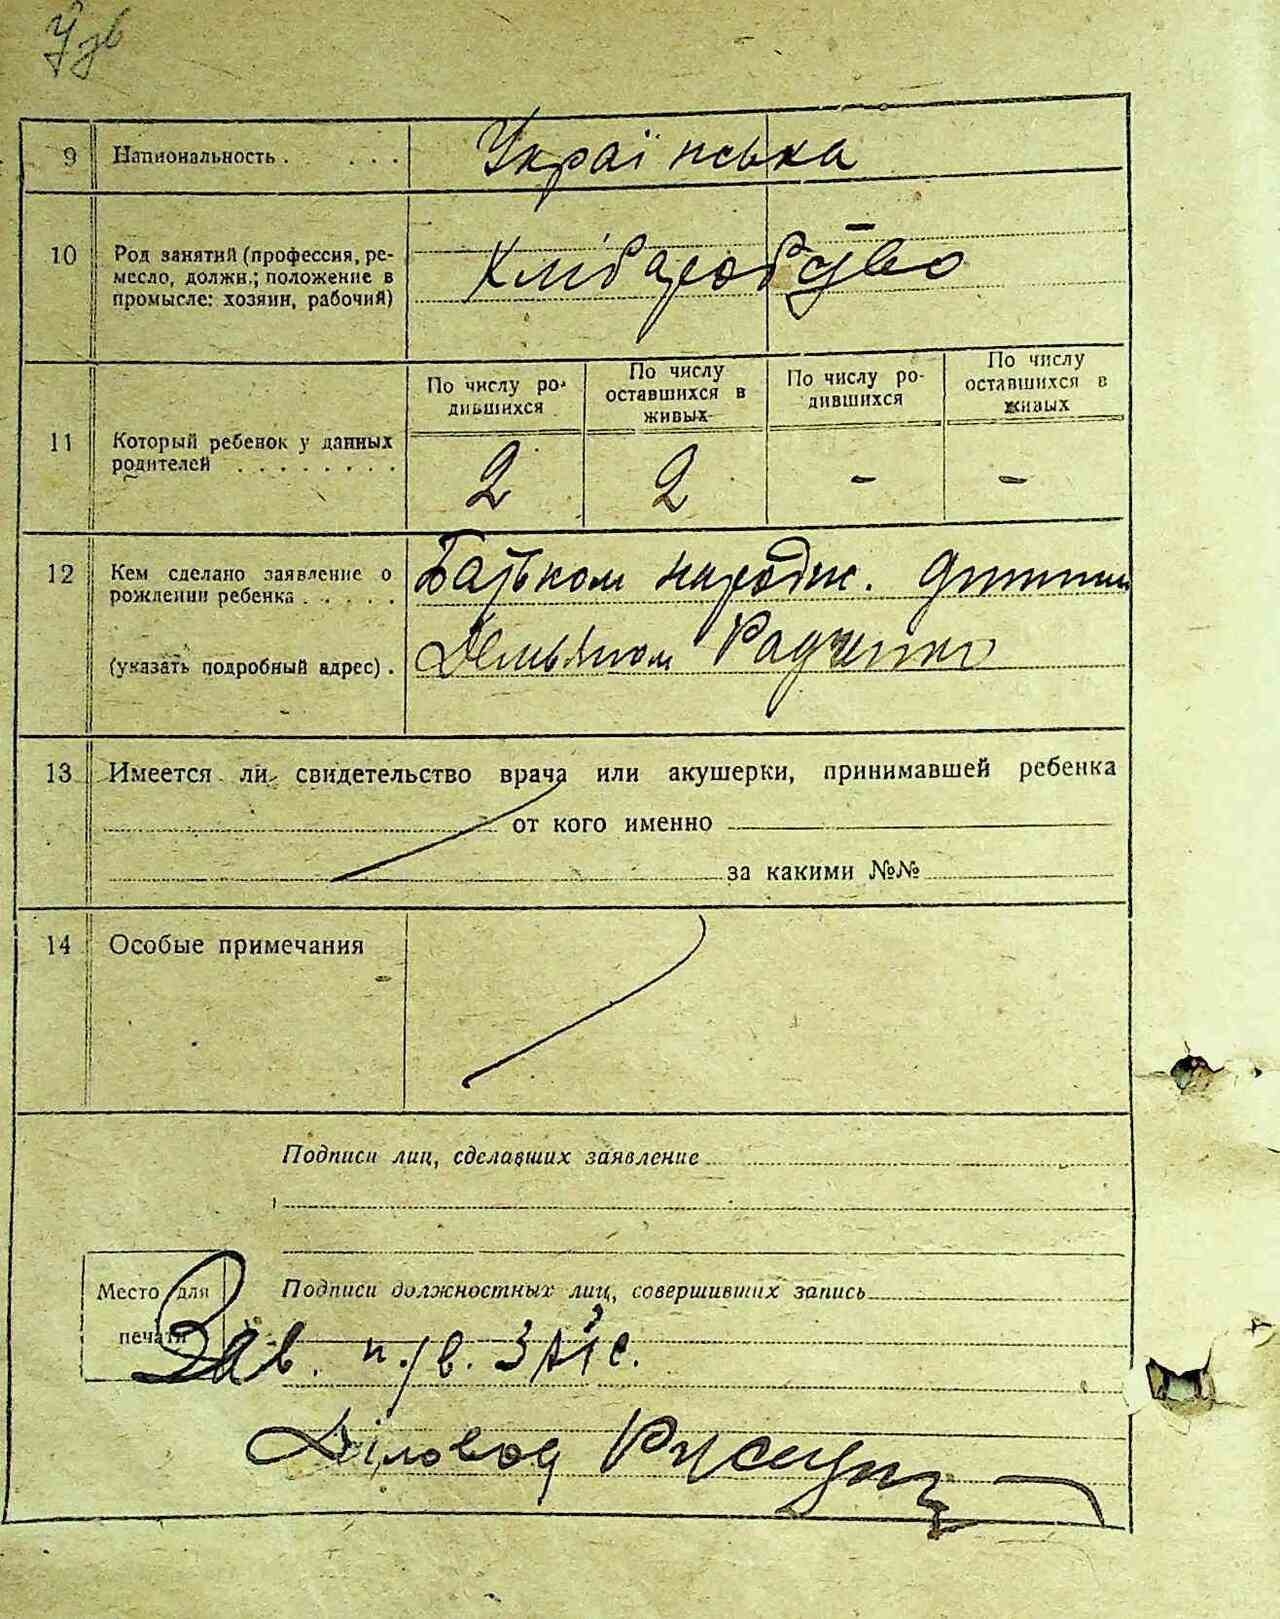 9 Национальность . . . . Українська
10 Род занятий (профессия, ре-
месло, должн.; положение в
промысле: хозяин, рабочий)
Хлібаробство
По числу ро-
дившихся
По числу
оставшихся в
живых
По числу ро-
дившихся
По числу
оставшихся в
живых
11 Который ребенок у данных
родителей . . . . . . . .
2 2 - -
12 Кем сделано заявление о
рождении ребенка . . . . .
(указать подробный адрес) .
Батьком народж. дитини
Демьяном Радченко
13 Имеется ли свидетельство врача или акушерки, принимавшей ребенка
от кого именно
за какими №№
14 Особые примечания
Подписи лиц, сделавших заявление
Место для
печати
Подписи должностных лиц, совершивших запись
Зав. п/в. ЗАГС.
Діловод